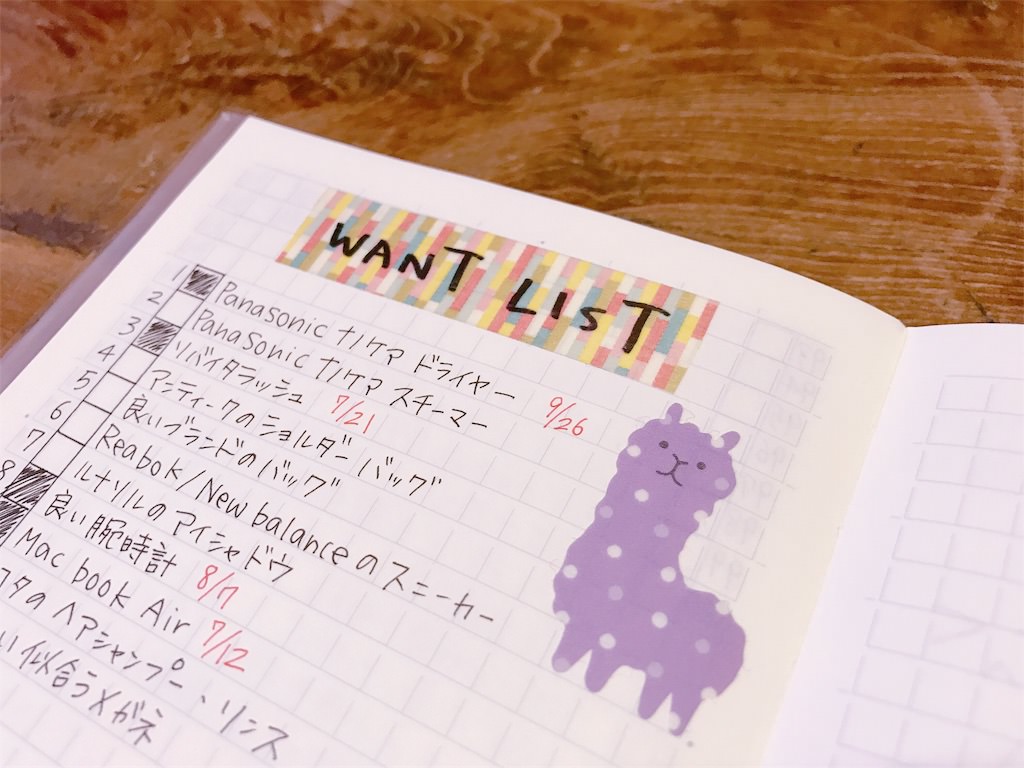 WANT LIST
1 Panasonic ナノケア ドライヤー 9/26
2 Panasonic ナノケア スチーマー
3 リバイタラッシュ 7/21
4 アンティークのショルダーバッグ
5 良いブランドのバッグ
6 Reabok/New balanceのスニーカー
7 ルナソルのアイシャドウ
8 良い腕時計 8/7
Mac book Air 7/12
のヘアシャンプー、リンス
似合うメガネ